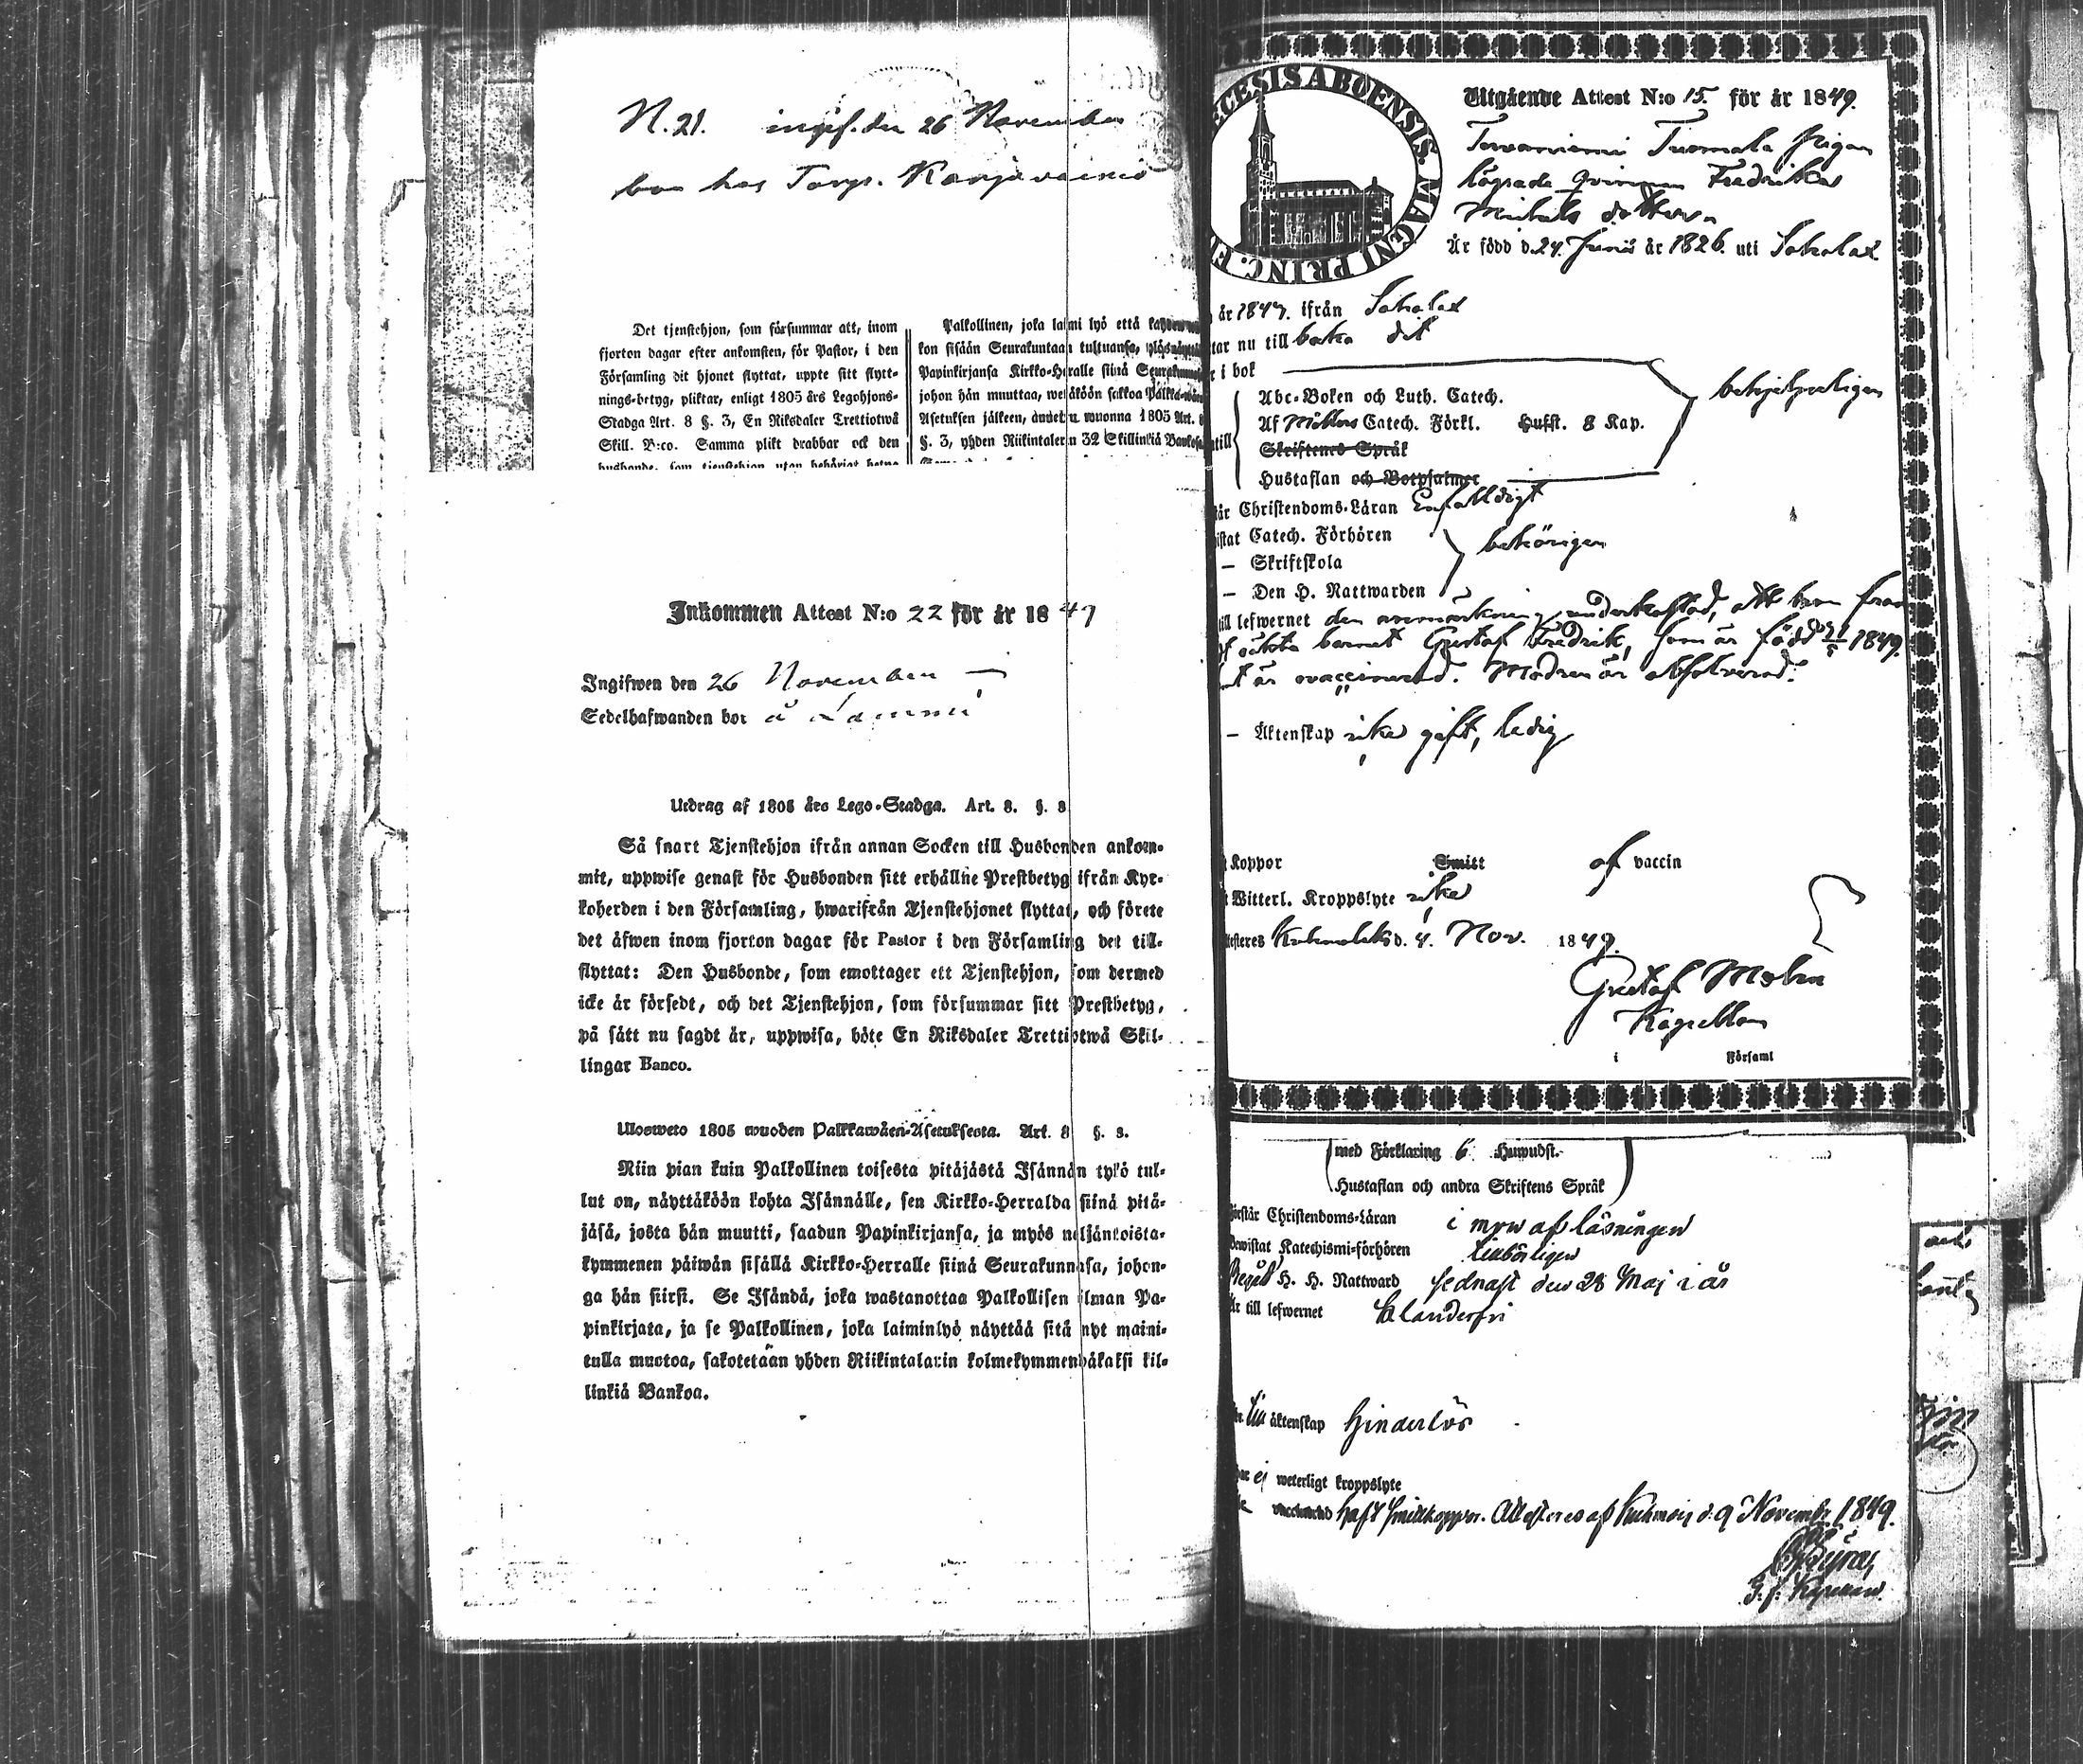 N. 21. ingif. den 26 November
bor hos Torp. Karjavainio
Det tjenstehjon, som försummar att, inom
fjorton dagar efter ankomsten, för Pastor, i den
Församling dit hjonet flyttat, uppte sitt flytt-
nings-betyg, pliktar, enligt 1805 års Legohjons-
Stadga Art. 8 §. 3, En Riksdaler Trettiotwå
Skill. B:co. Samma plikt drabbar ock den
husbonde, som tjenstehjon utan behörigt betyg
Palkollinen, joka laimi lyö että
kon sisään Seurakuntaan tultuansa,
Papinkirjansa Kirkko-Herralle siinä
johon hän muuttaa, wetäköön sakkoa
Asetuksen jälkeen, vuonna 1805 Art.
§. 3, yhden Riikintalerin 32 Skillinkiä
Inkommen Attest N:o 22 för år 1849
Ingifwen den 26 November
Sedelhafwanden bor å Lammi
Utdrag af 1805 års Lego-Stadga. Art. 8. §. 3
Så snart Tjenstehjon ifrån annan Socken till Husbonden ankom-
mit, uppwise genast för Husbonden sitt erhållne Prestbetyg ifrån Kyr-
koherden i den Församling, hwarifrån Tjenstehjonet flyttat, och förete
det äfwen inom fjorton dagar för Pastor i den Församling det till-
flyttat: Den Husbonde, som emottager ett Tjenstehjon, som dermed
icke är försedt, och det Tjenstehjon, som försummar sitt Prestbetyg,
på sätt nu sagdt är, uppwisa, böte En Riksdaler Trettiotwå Skil-
lingar Banco.
Ulosweto 1805 wuoden Palkkawäen-Asetuksesta. Art. 8 §. 3.
Niin pian kuin Palkollinen toisesta pitäjästä Isännän tykö tul-
lut on, näyttäköön kohta Isännälle, sen Kirkko-Herralda siinä pitä-
jäsä, josta hän muutti, saadun Papinkirjansa, ja myös neljäntoista-
kymmenen päiwän sisällä Kirkko-Herralle siinä Seurakunnasa, johon-
ga hän siirsi. Se Isändä, joka wastanottaa Palkollisen ilman Pa-
pinkirjata, ja se Palkollinen, joka laiminlyö näyttää sitä nyt maini-
tulla muotoa, sakotetaan yhden Riikintalarin kolmekymmendäkaksi kil-
linkiä Bankoa.
ECESIS ABOENSIS. MAGNI PRINC. F
Utgående Attest N:o 15. för år 1849.
Tuomala Pigan
lägrade qvinnan Fredrika
Michels dotter
Är född d. 24. Junii år 1826. uti Sahalax
år 1847. ifrån Sahalax
tar nu till baka dit
i bok
Abc-Boken och Luth. Catech.
Af Möllers Catech. Förkl. Hufst. 8 Kap.
till
Skriftenes Språk
Hustaflan och Botpsalmer
behjelpeligen
Christendoms-Läran Enfaldigt
istat Catech. Förhören
behörigen
– Skriftskola
– Den H. Nattwarden
till lefwernet den anmärkning underkastad, att hon
oäkta barnet Gustaf Fredrik, som är född 1849.
är ovaccinerad. Modren är absolverad.
– Äktenskap icke gift, ledig
Koppor Smitt af vaccin
Witterl. Kroppslyte icke
d. 4. Nov. 1849.
Gustaf
Kapellan
i Församl
med Förklaring 6 Huwudst.
Hustaflan och andra Skriftens Språk
Förstår Christendoms-Läran i mon af läsningen
bewistat Katechismi-förhören
Begått H. H. Nattward sednast den 28 Maj i år
Är till lefwernet klanderfri
till äktenskap hinderlös
ej weterligt kroppslyte
vaccinerad haft smittkoppor. Attesteras af d. 9 November 1849.